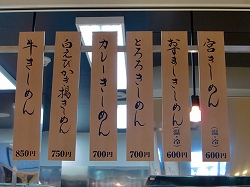 宮きしめん
(温・冷)
600円
おすましきしめん
(温・冷)
600円
とろろきしめん
700円
カレーきしめん
700円
白えびかき揚きしめん
750円
牛きしめん
850円